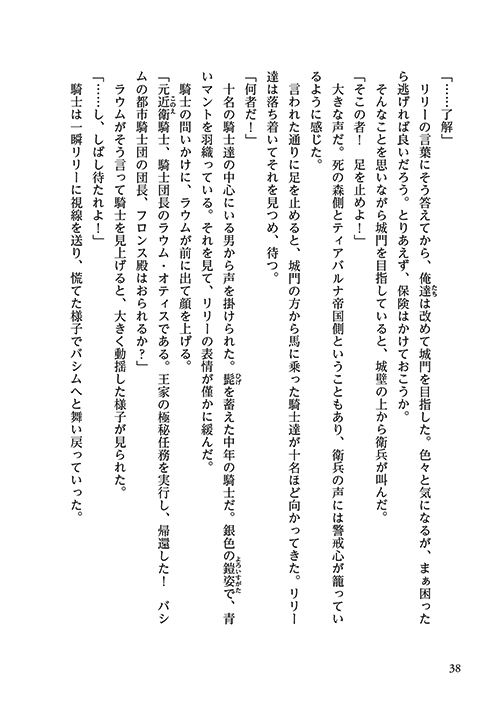 「……了解」
リリーの言葉にそう答えてから、俺達は改めて城門を目指した。色々と気になるが、まぁ困った
ら逃げれば良いだろう。とりあえず、保険はかけておこうか。
そんなことを思いながら城門を目指していると、城壁の上から衛兵が叫んだ。
「そこの者！　足を止めよ！」
大きな声だ。死の森側とティアバルナ帝国側ということもあり、衛兵の声には警戒心が籠ってい
るように感じた。
言われた通りに足を止めると、城門の方から馬に乗った騎士達が十名ほど向かってきた。リリー
達は落ち着いてそれを見つめ、待つ。
「何者だ！」
十名の騎士達の中心にいる男から声を掛けられた。髭を蓄えた中年の騎士だ。銀色の鎧姿で、青
いマントを羽織っている。それを見て、リリーの表情が僅かに緩んだ。
騎士の問いかけに、ラウムが前に出て顔を上げる。
「元近衛騎士、騎士団長のラウム・オティスである。王家の極秘任務を実行し、帰還した！　バシ
ムの都市騎士団の団長、フロンス殿はおられるか？」
ラウムがそう言って騎士を見上げると、大きく動揺した様子が見られた。
「……し、しばし待たれよ！」
騎士は一瞬リリーに視線を送り、慌てた様子でバシムへと舞い戻っていった。
38